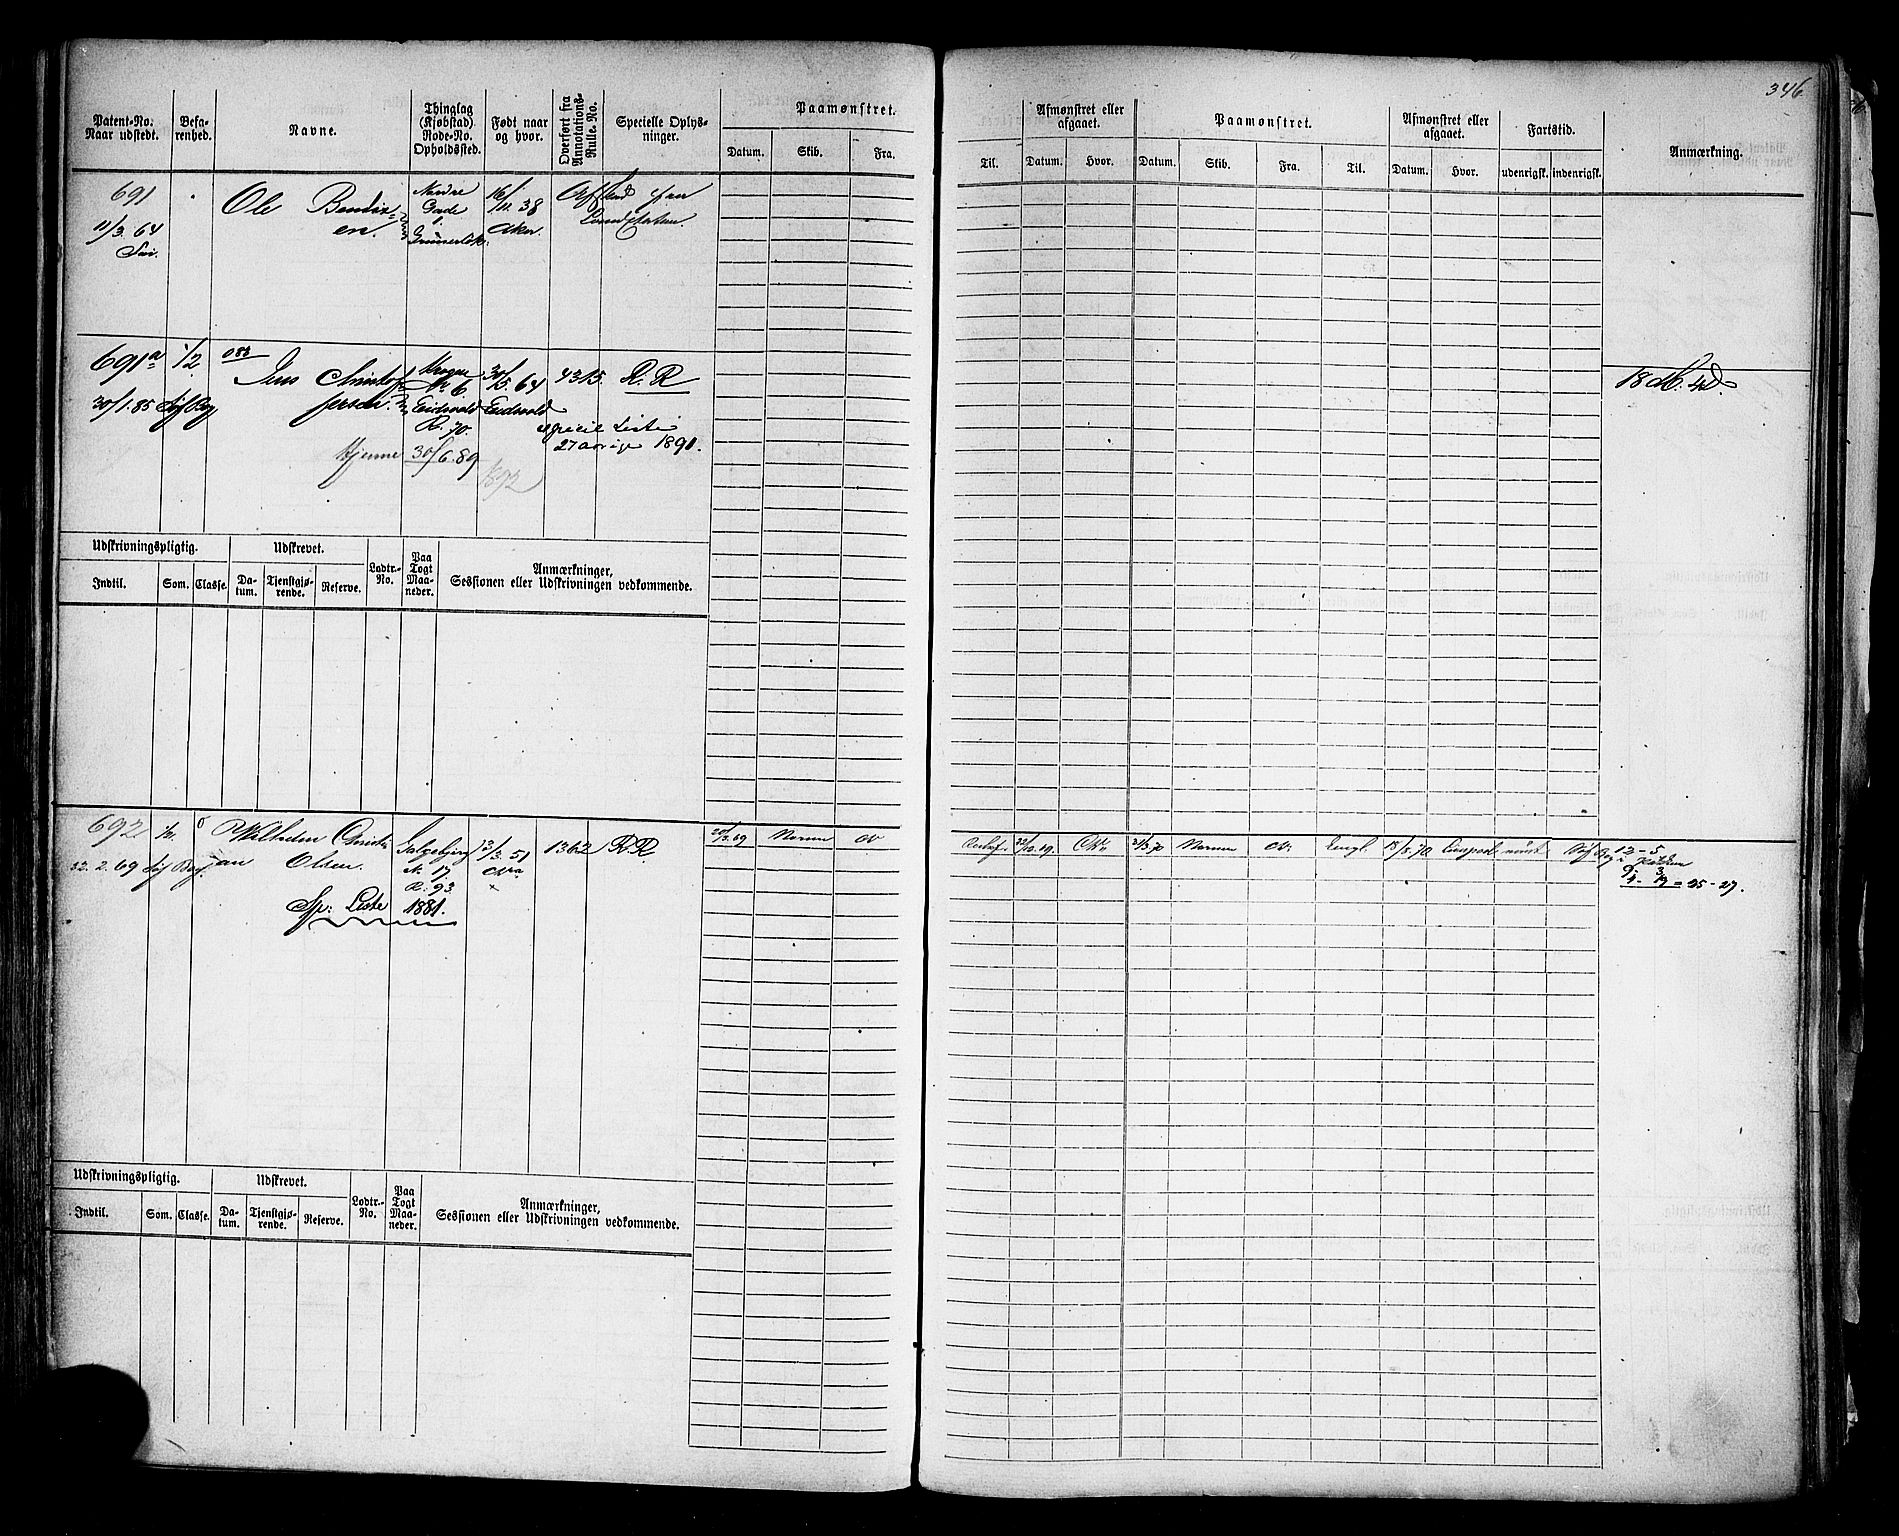 346
Patent-No. Naar udstedt.
Befarenhed.
Navne.
Thinglag (Kjøbstad) Rode-No. Opholdssted.
Født naar og hvor.
Overført fra Annotations-Rulle. No.
Specielle Oplysninger.
Paamønstret.
Datum. Skib. Fra.
Til.
Afmønstret eller afgaaet.
Datum. Hvor.
Paamønstret.
Datum. Skib. Fra. Til.
Afmønstret eller afgaaet.
Datum. Hvor.
Fartstid.
udenrigsk. indenrigsk.
Anmærkning.
691
11/3. 64
Ole Bendix-
en.
Nordre
Gade
1.
Grünerløk.
16/11. 38
Aker.
691a 1/2
30/1. 85
Jens Christof-
fersen.
No 6
Eidsvold
R. 70.
30/5. 64
Eidsvold
4315. R. R
speciel Liste
27 aarige 1891.
Hjemme 30/6. 89
1892
18 M. 4 D.
Udskrivningspligtig. Udskrevet. Lodtr.-No. Paa Togt Maaneder. Anmærkninger, Sessionen eller Udskrivningen vedkommende.
Indtil. Som. Classe. Datum. Tjenstgjørende. Reserve.
692
22. 2. 69
Wilhelm Christi-
an Olsen.
Galgebjerg
N. 17
R. 93
3/3. 51
1362 R. R
Sp: Liste 1881.
12-5
= 25-27.
Udskrivningspligtig. Udskrevet. Lodtr.-No. Paa Togt Maaneder. Anmærkninger, Sessionen eller Udskrivningen vedkommende.
Indtil. Som. Classe. Datum. Tjenstgjørende. Reserve.